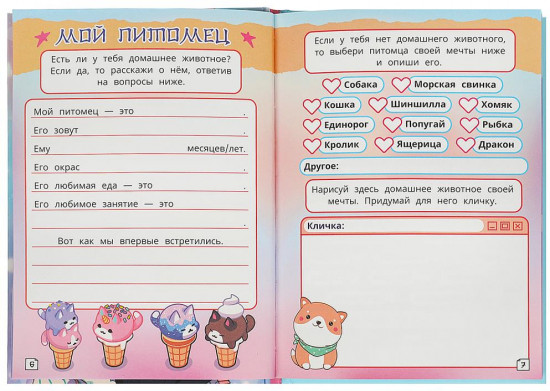 МОЙ ПИТОМЕЦ
Есть ли у тебя домашнее животное?
Если да, то расскажи о нём, ответив
на вопросы ниже.
Мой питомец — это .
Его зовут .
Ему месяцев/лет.
Его окрас .
Его любимая еда — это .
Его любимое занятие — это
.
Вот как мы впервые встретились.
6
Если у тебя нет домашнего животного,
то выбери питомца своей мечты ниже
и опиши его.
Собака Морская свинка
Кошка Шиншилла Хомяк
Единорог Попугай Рыбка
Кролик Ящерица Дракон
Другое:
Нарисуй здесь домашнее животное своей
мечты. Придумай для него кличку.
Кличка:
7